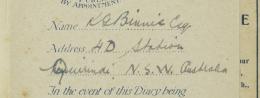 BY APPOINTMENT
Name R G Binnie Esq
Address H.D. Station
Quirindi N.S.W. Australia
In the event of this Diary being